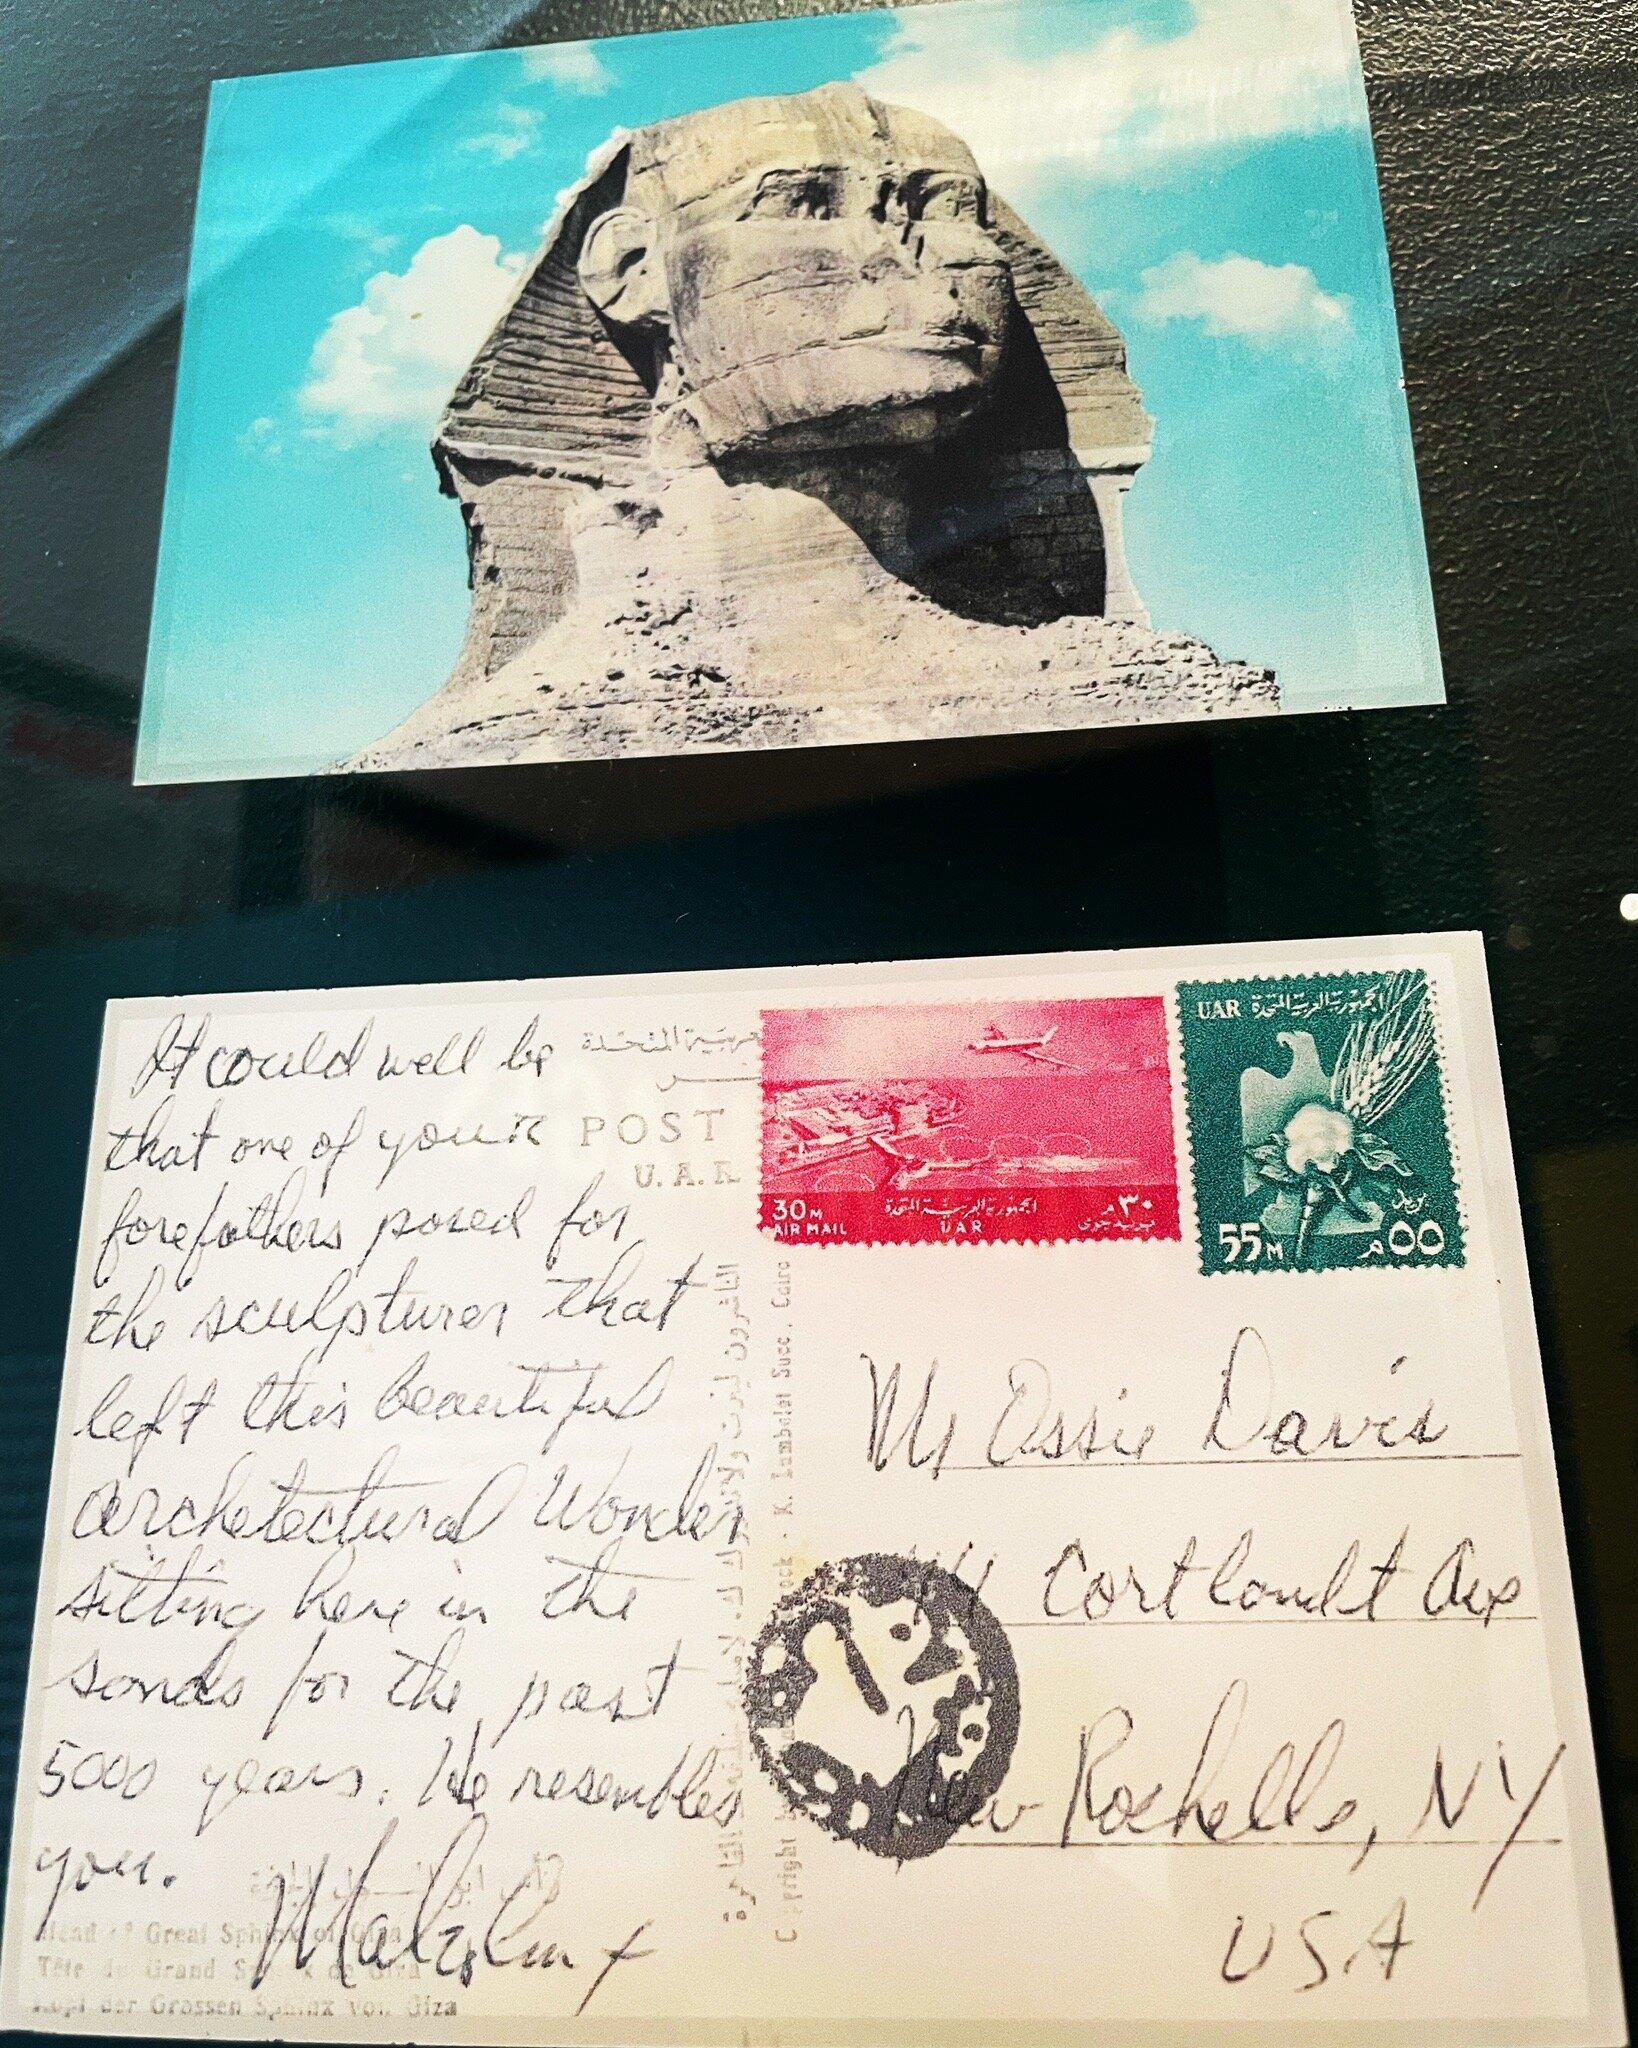 It could well be
that one of your
forefathers posed for
the sculpturer that
left this beautiful
archetectural Wonder
sitting here in the
sands for the past
5000 years. He resembles
you.
Malcolm X
Head of Great Sphinx of Giza
Tête du Grand Sphinx de Giza
Kopf der Grossen Sphinx von Giza
المتحدة
POST
U.A.R.
30M
AIR MAIL
الجمهورية العربية المتحدة
UAR
٣٠ م
بريد جوى
UAR الجمهورية العربية المتحدة
بريد
55M
٥٥ م
Copyright by K. Lambelet Succ. Cairo
Mr Ossie Davis
Cortlandt Ave
New Rochelle, NY
USA